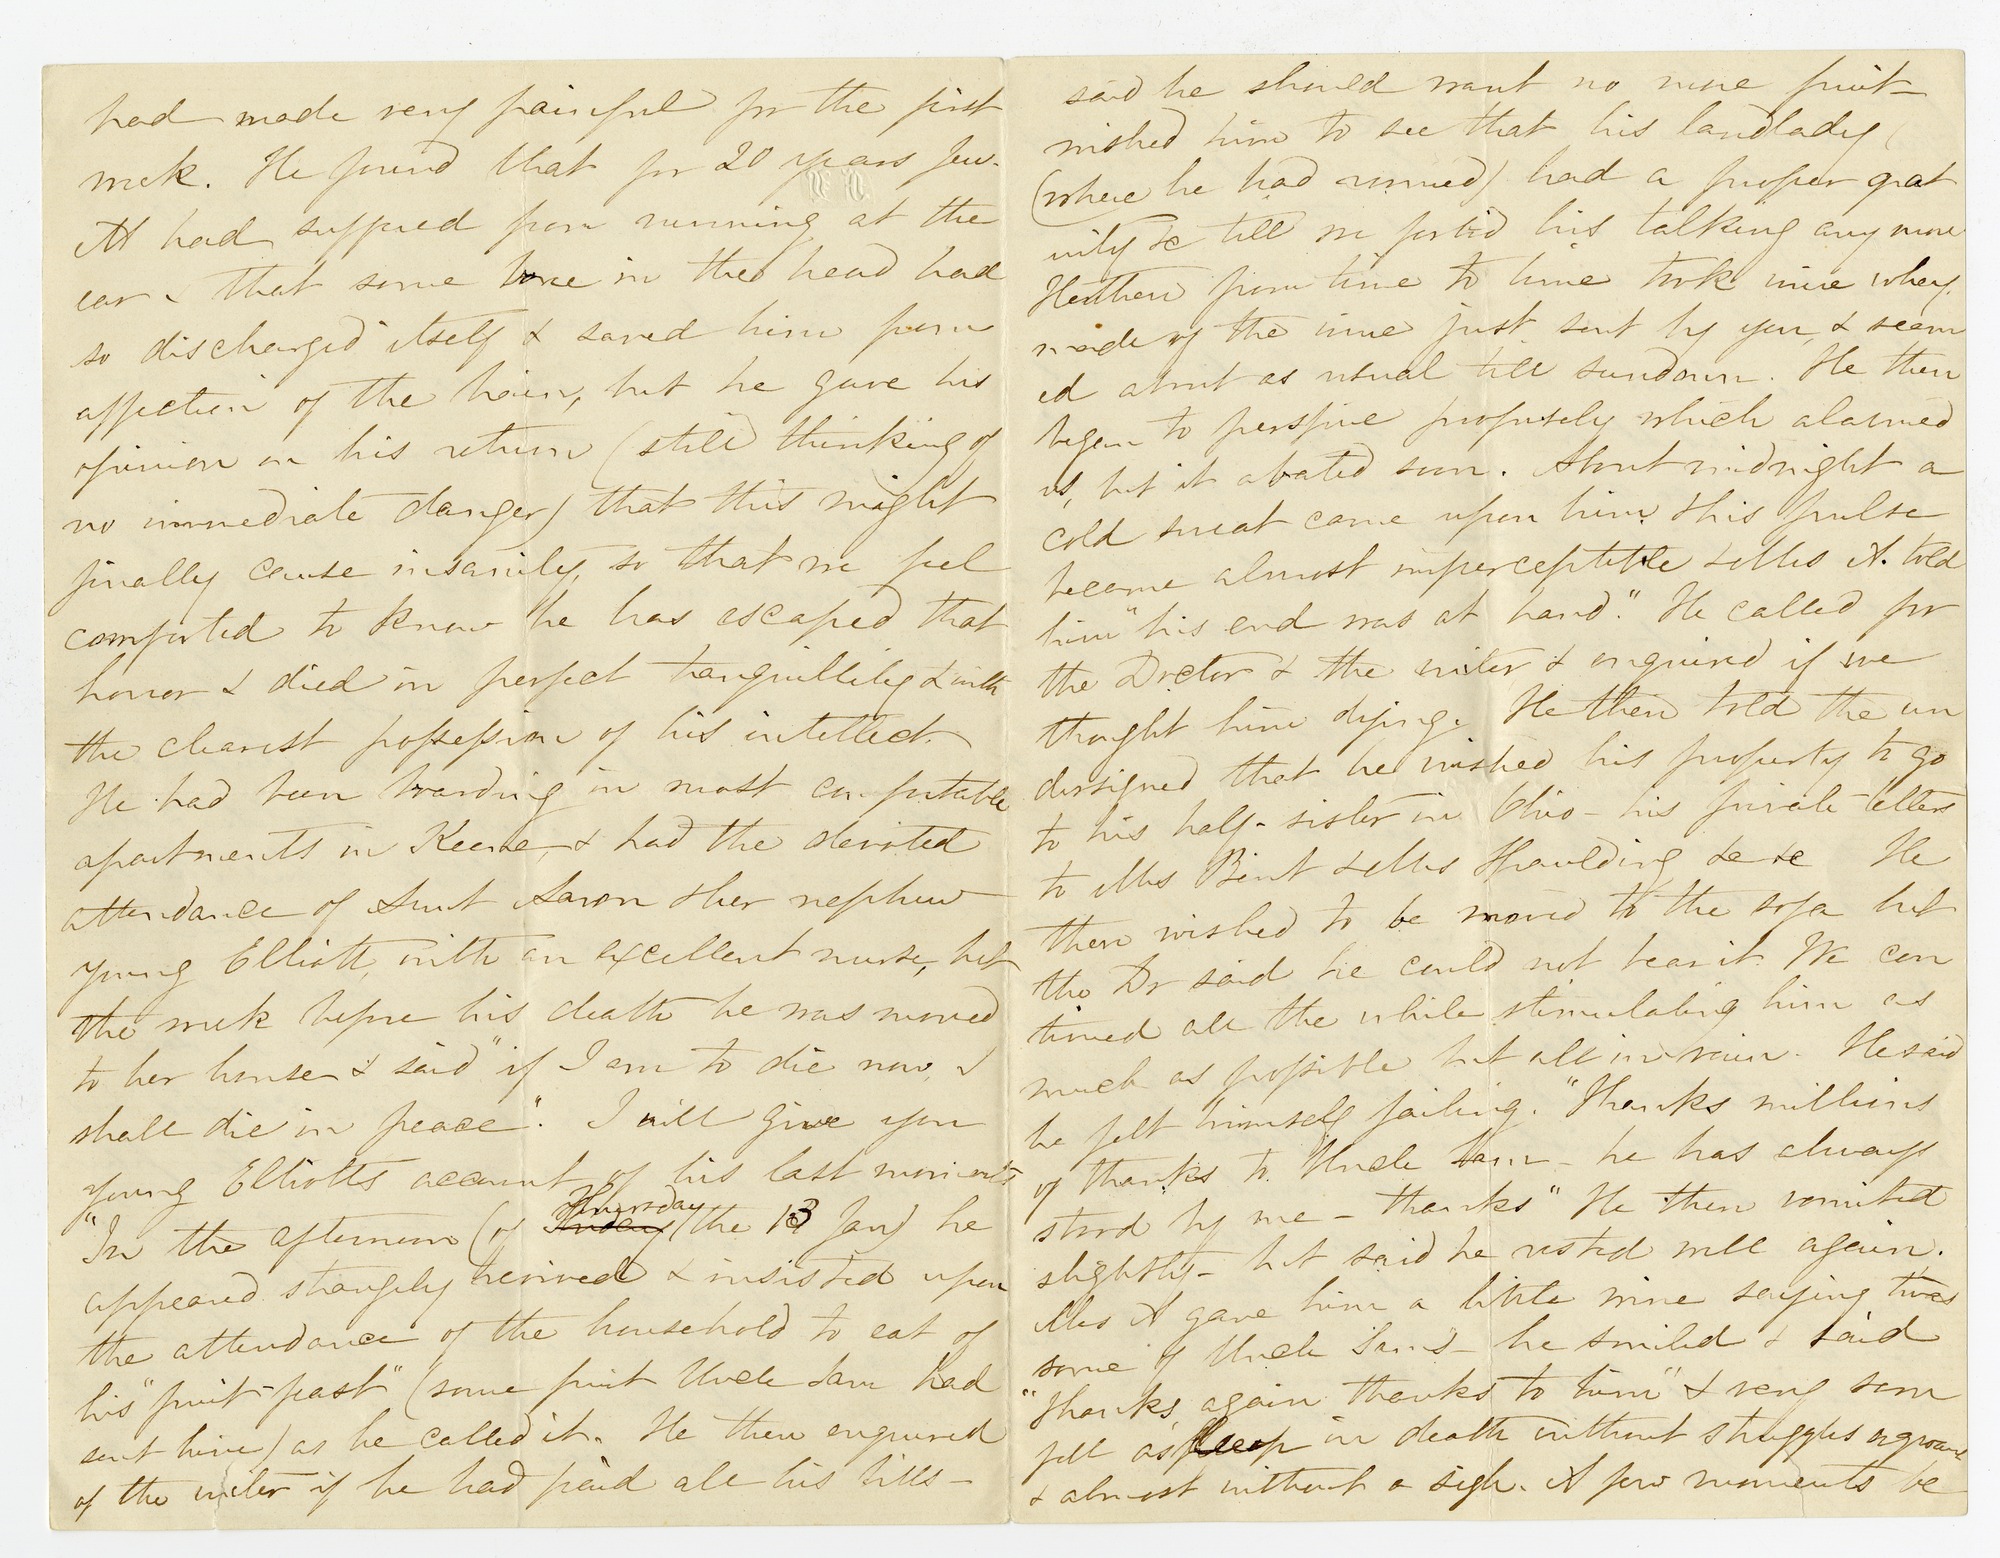 had made very painful for the first
week. He found that for 20 years Jew.
Att had suffered from running at the
ear & that some bone in the head had
so discharged itself & saved him from
affection of the brain, but he gave his
opinion on his return (still thinking of
no immediate danger) that this might
finally cause insanity, so that we feel
comforted to know he has escaped that
horror & died in perfect tranquillity & with
the clearest possession of his intellect.
He had been boarding in most comfortable
apartments in Keene, & had the devoted
attendance of Aunt Aaron & her nephew
young Elliott, with an excellent nurse, but
the week before his death he was moved
to her house & said "if I am to die now, I
shall die in peace". I will give you
young Elliotts account of his last moments
"In the afternoon (of Thursday (the 13 Jan) he
appeared strangely revived & insisted upon
the attendance of the household to eat of
his "fruit-feast" (some fruit Uncle Sam had
sent him) as he called it. He then enquired
of the writer if he had paid all his bills—
said he should want no more fruit—
wished him to see that his landlady (
(where he had roomed) had a proper grat
uity &c till we forbid his talking any more
He then from time to time took wine whey
made of the wine just sent by you, & seem
ed about as usual till sundown. He then
began to perspire profusely which alarmed
us, but it abated soon. About midnight a
cold sweat came upon him & his pulse
became almost imperceptible & Mrs A. told
him "his end was at hand." He called for
the Doctor & the writer & enquired if we
thought him dying. He then told the un
dersigned that he wished his property to go
to his half-sister in Ohio— his private letters
to Mrs Bent & Mrs Spaulding &c &c He
then wished to be moved to the sofa but
the Dr said he could not bear it. We con
tinued all the while stimulating him as
much as possible but all in vain. He said
he felt himself failing. "Thanks millions
of thanks to Uncle Sam— he has always
stood by me— thanks" He then vomited
slightly— but said he rested well again.
Mrs A gave him a little wine saying twas
some of Uncle Sam's— he smiled & said
"Thanks, again thanks to him" & very soon
fell asleep in death without struggles or groans
& almost without a sigh. A few moments be